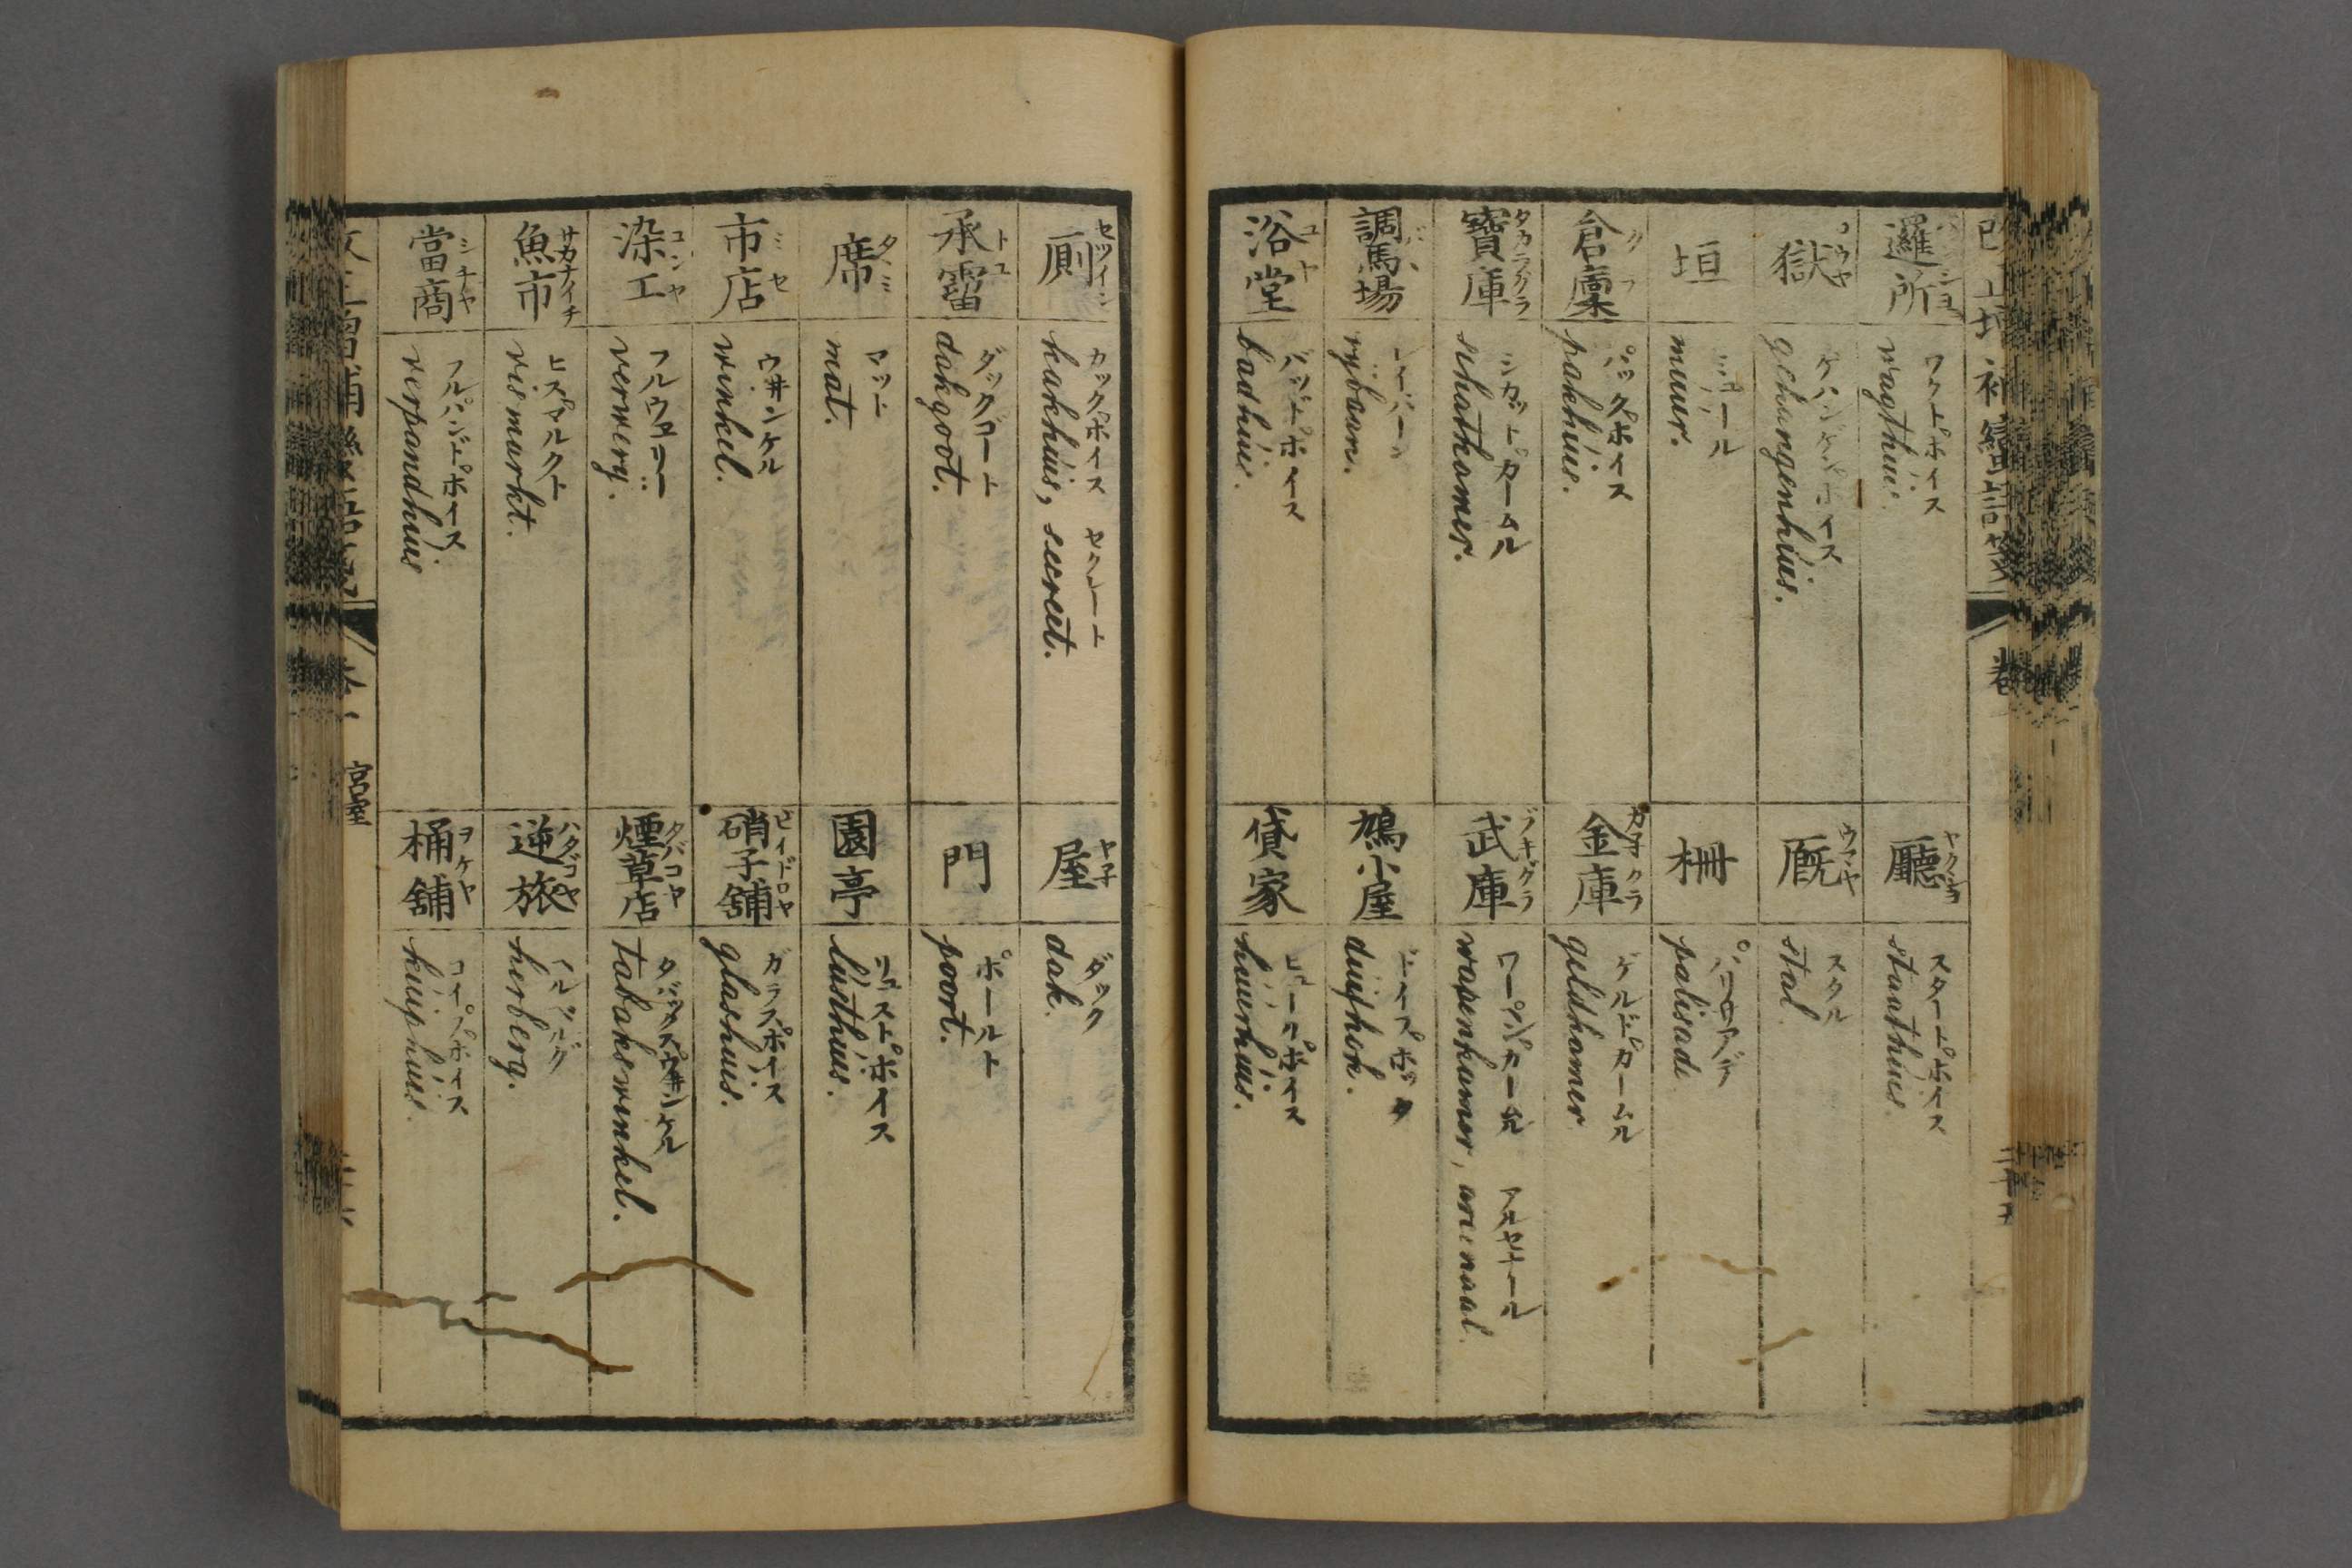 邏所
ワクトホイス
wagthuis.
獄
ゲハンゲンホイス
gehangenhuis.
垣
ミュール
muur.
倉廩
パックホイス
pakhuis.
寶庫 タカラグラ
シカットカームル
schatkamer.
調馬場
レイバーン
rybaan.
浴堂 ユヤ
バットホイス
badhuis.
廳
スタートホイス
staathuis.
厩 ウマヤ
スタル
stal
柵
palisade
金庫 カ子クラ
ゲルトカームル
geldkamer
武庫 ブキグラ
ワーペンカームル アルセナール
wapenkamer, arsenaal.
鳩小屋
ドイフホック
duifhok.
貸家
ヒュールホイス
huurhuis.
厠 セツイン
カックホイス セクレート
kakhuis, secreet.
承霤 トユ
ダックゴート
dakgoot.
席 タヽミ
マット
mat.
市店 ミセ
ウ井ンケル
winkel.
染工 コンヤ
フルウェリー
ververy.
魚市 サカナイチ
ヒスマルクト
vismarkt.
當商 シチヤ
フルパンドホイス
verpandhuis
屋 ヤ子
ダック
dak.
門
ポールト
poort.
園亭
リュストホイス
lusthuis.
硝子舗 ビイドロヤ
ガラスホイス
glashuis.
煙草店 タバコヤ
タバックスウ井ンケル
tabakswinkel.
逆旅 ハタゴヤ
herberg.
桶舗 ヲケヤ
コイプホイス
kuiphuis.
宮室